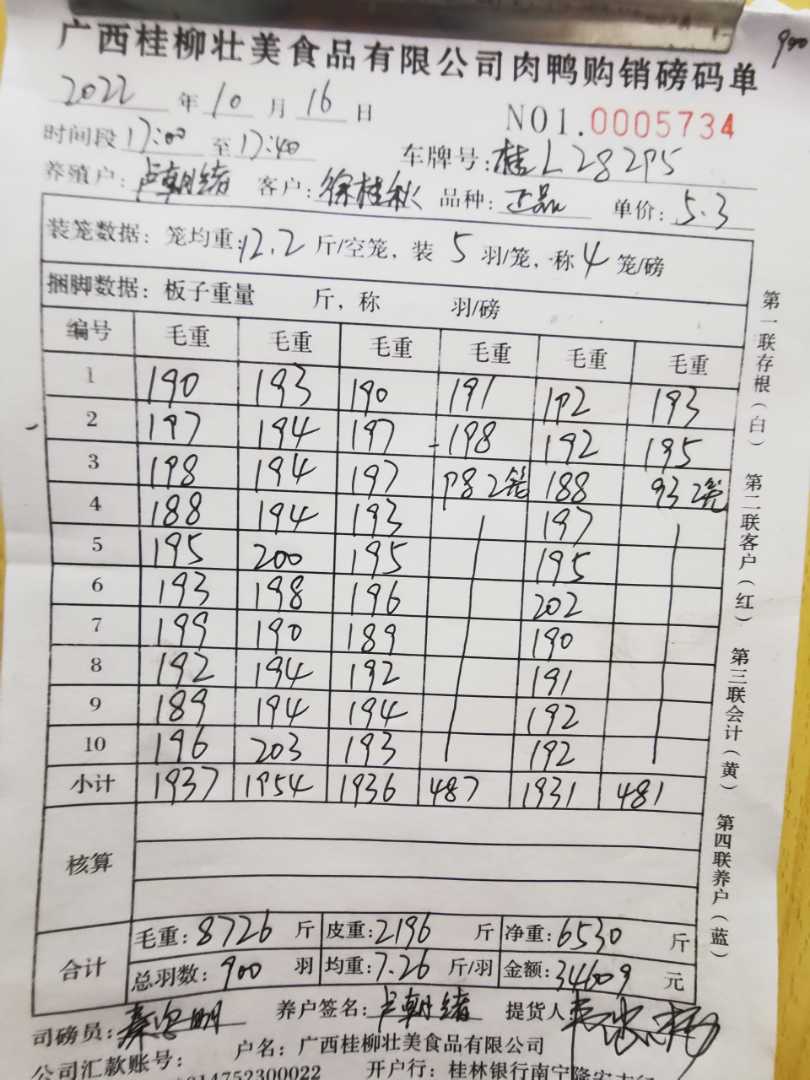 900
广西桂柳壮美食品有限公司肉鸭购销磅码单
2022 年 10 月 16 日 NO1.0005734
时间段 17:00 至 17:40 车牌号: 桂L282P5
养殖户: 卢朝绪 客户: 徐桂秋 品种: 正品 单价: 5.3
装笼数据: 笼均重: 12.2 斤/空笼, 装 5 羽/笼, 称 4 笼/磅
捆脚数据: 板子重量 斤, 称 羽/磅
编号 毛重 毛重 毛重 毛重 毛重 毛重
1 190 193 190 191 192 193
2 197 194 197 198 192 195
3 198 194 197 98 2笼 188 93 2笼
4 188 194 193 197
5 195 200 195 195
6 193 198 196 202
7 199 190 189 190
8 192 194 192 191
9 189 194 194 192
10 196 203 193 192
小计 1937 1954 1936 487 1931 481
核算
合计 毛重: 8726 斤 皮重: 2196 斤 净重: 6530 斤
总羽数: 900 羽 均重: 7.26 斤/羽 金额: 34609 元
司磅员: 养户签名: 卢朝绪 提货人
公司汇款账号: 户名: 广西桂柳壮美食品有限公司
14752300022 开户行: 桂林银行南宁隆安支行
第一联存根(白)
第二联客户(红)
第三联会计(黄)
第四联养户(蓝)